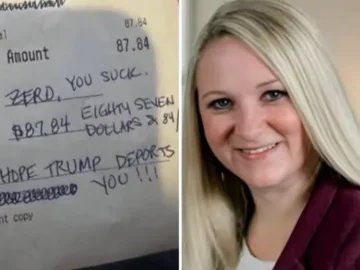 87.84
Amount 87.84
ZERO, YOU SUCK.
$87.84 EIGHTY SEVEN
DOLLARS & 84/
HOPE TRUMP DEPORTS
YOU!!!
nt copy